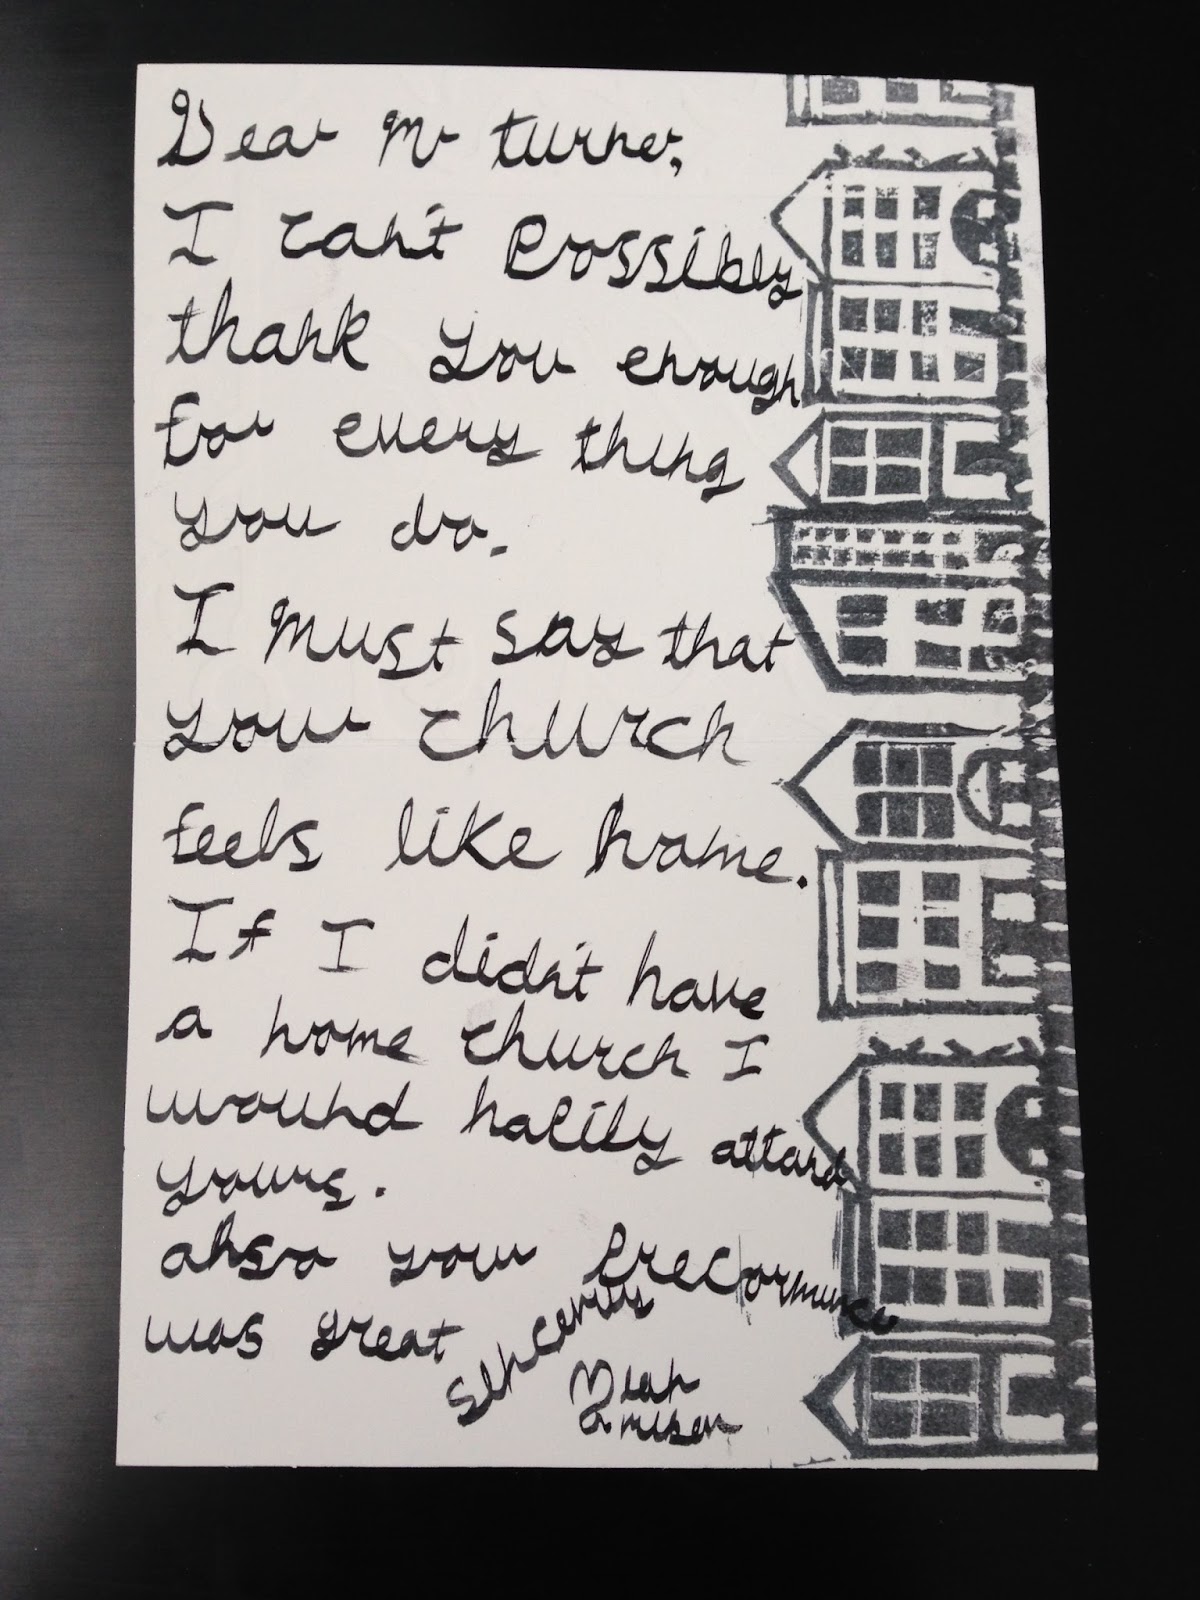 Dear Mr turner,
I can't Possibly
thank you enough
for every thing
you do.
I must say that
your church
feels like home.
If I didn't have
a home church I
wound hapily attand
yours.
also your Preformance
was great
Sincerely